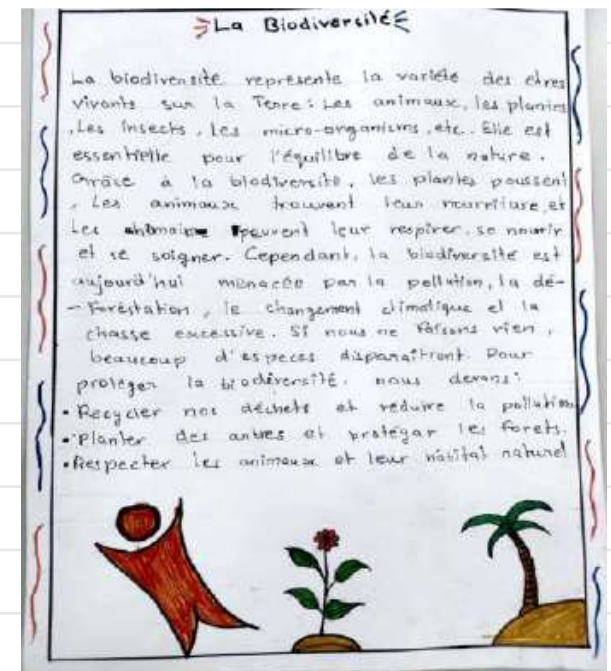 La Biodiversité
La biodiversité représente la variété des êtres
vivants sur la Terre : Les animaux, les plantes
, Les insects, Les micro-organisms, etc. Elle est
essentielle pour l'équilibre de la nature.
Grâce à la biodiversité, les plantes poussent
, Les animaux trouvent leur nourriture, et
Les peuvent leur respirer, se nourrir
et se soigner. Cependant, la biodiversité est
aujourd'hui menacée par la pollution, la dé-
- Forestation, le changement climatique et la
chasse excessive. Si nous ne faisons rien,
beaucoup d'especes disparaîtront. Pour
protéger la biodiversité, nous devons :
• Recycler nos déchets et réduire la pollution
• Planter des arbres et protégar les forets.
• Respecter les animaux et leur habitat naturel